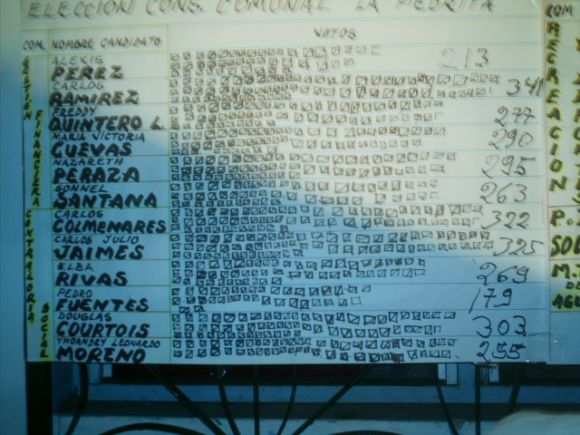 ELECCION CONS. COMUNAL LA PIEDRITA
COM. NOMBRE CANDIDATO VOTOS COM
GESTION FINANCIERA
ALEXIS
PEREZ 213
CARLOS
RAMIREZ 341
FREDDY
QUINTERO L. 277
MARIA VICTORIA
CUEVAS 290
NAZARETH
PERAZA 295
SONNEL
SANTANA 263
CONTRALORIA SOCIAL
CARLOS
COLMENARES 322
CARLOS JULIO
JAIMES 325
ELBA
RIVAS 269
PEDRO
FUENTES 179
DOUGLAS
COURTOIS 303
YHOANDRY LEONARDO
MORENO 255
RECREACION
P.
SO
M.
DE